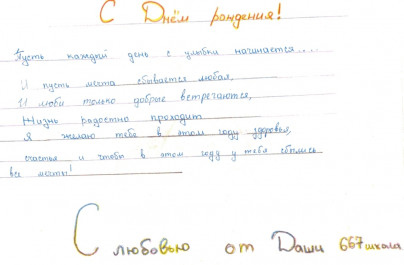 С Днём рождения!
Пусть каждый день с улыбки начинается....
И пусть мечта сбывается любая,
И люди только добрые встречаются,
Жизнь радостно проходит
Я желаю тебе в этом году здоровья,
счастья и чтобы в этом году у тебя сбылись
все мечты!
С любовью от Даши 667 школа